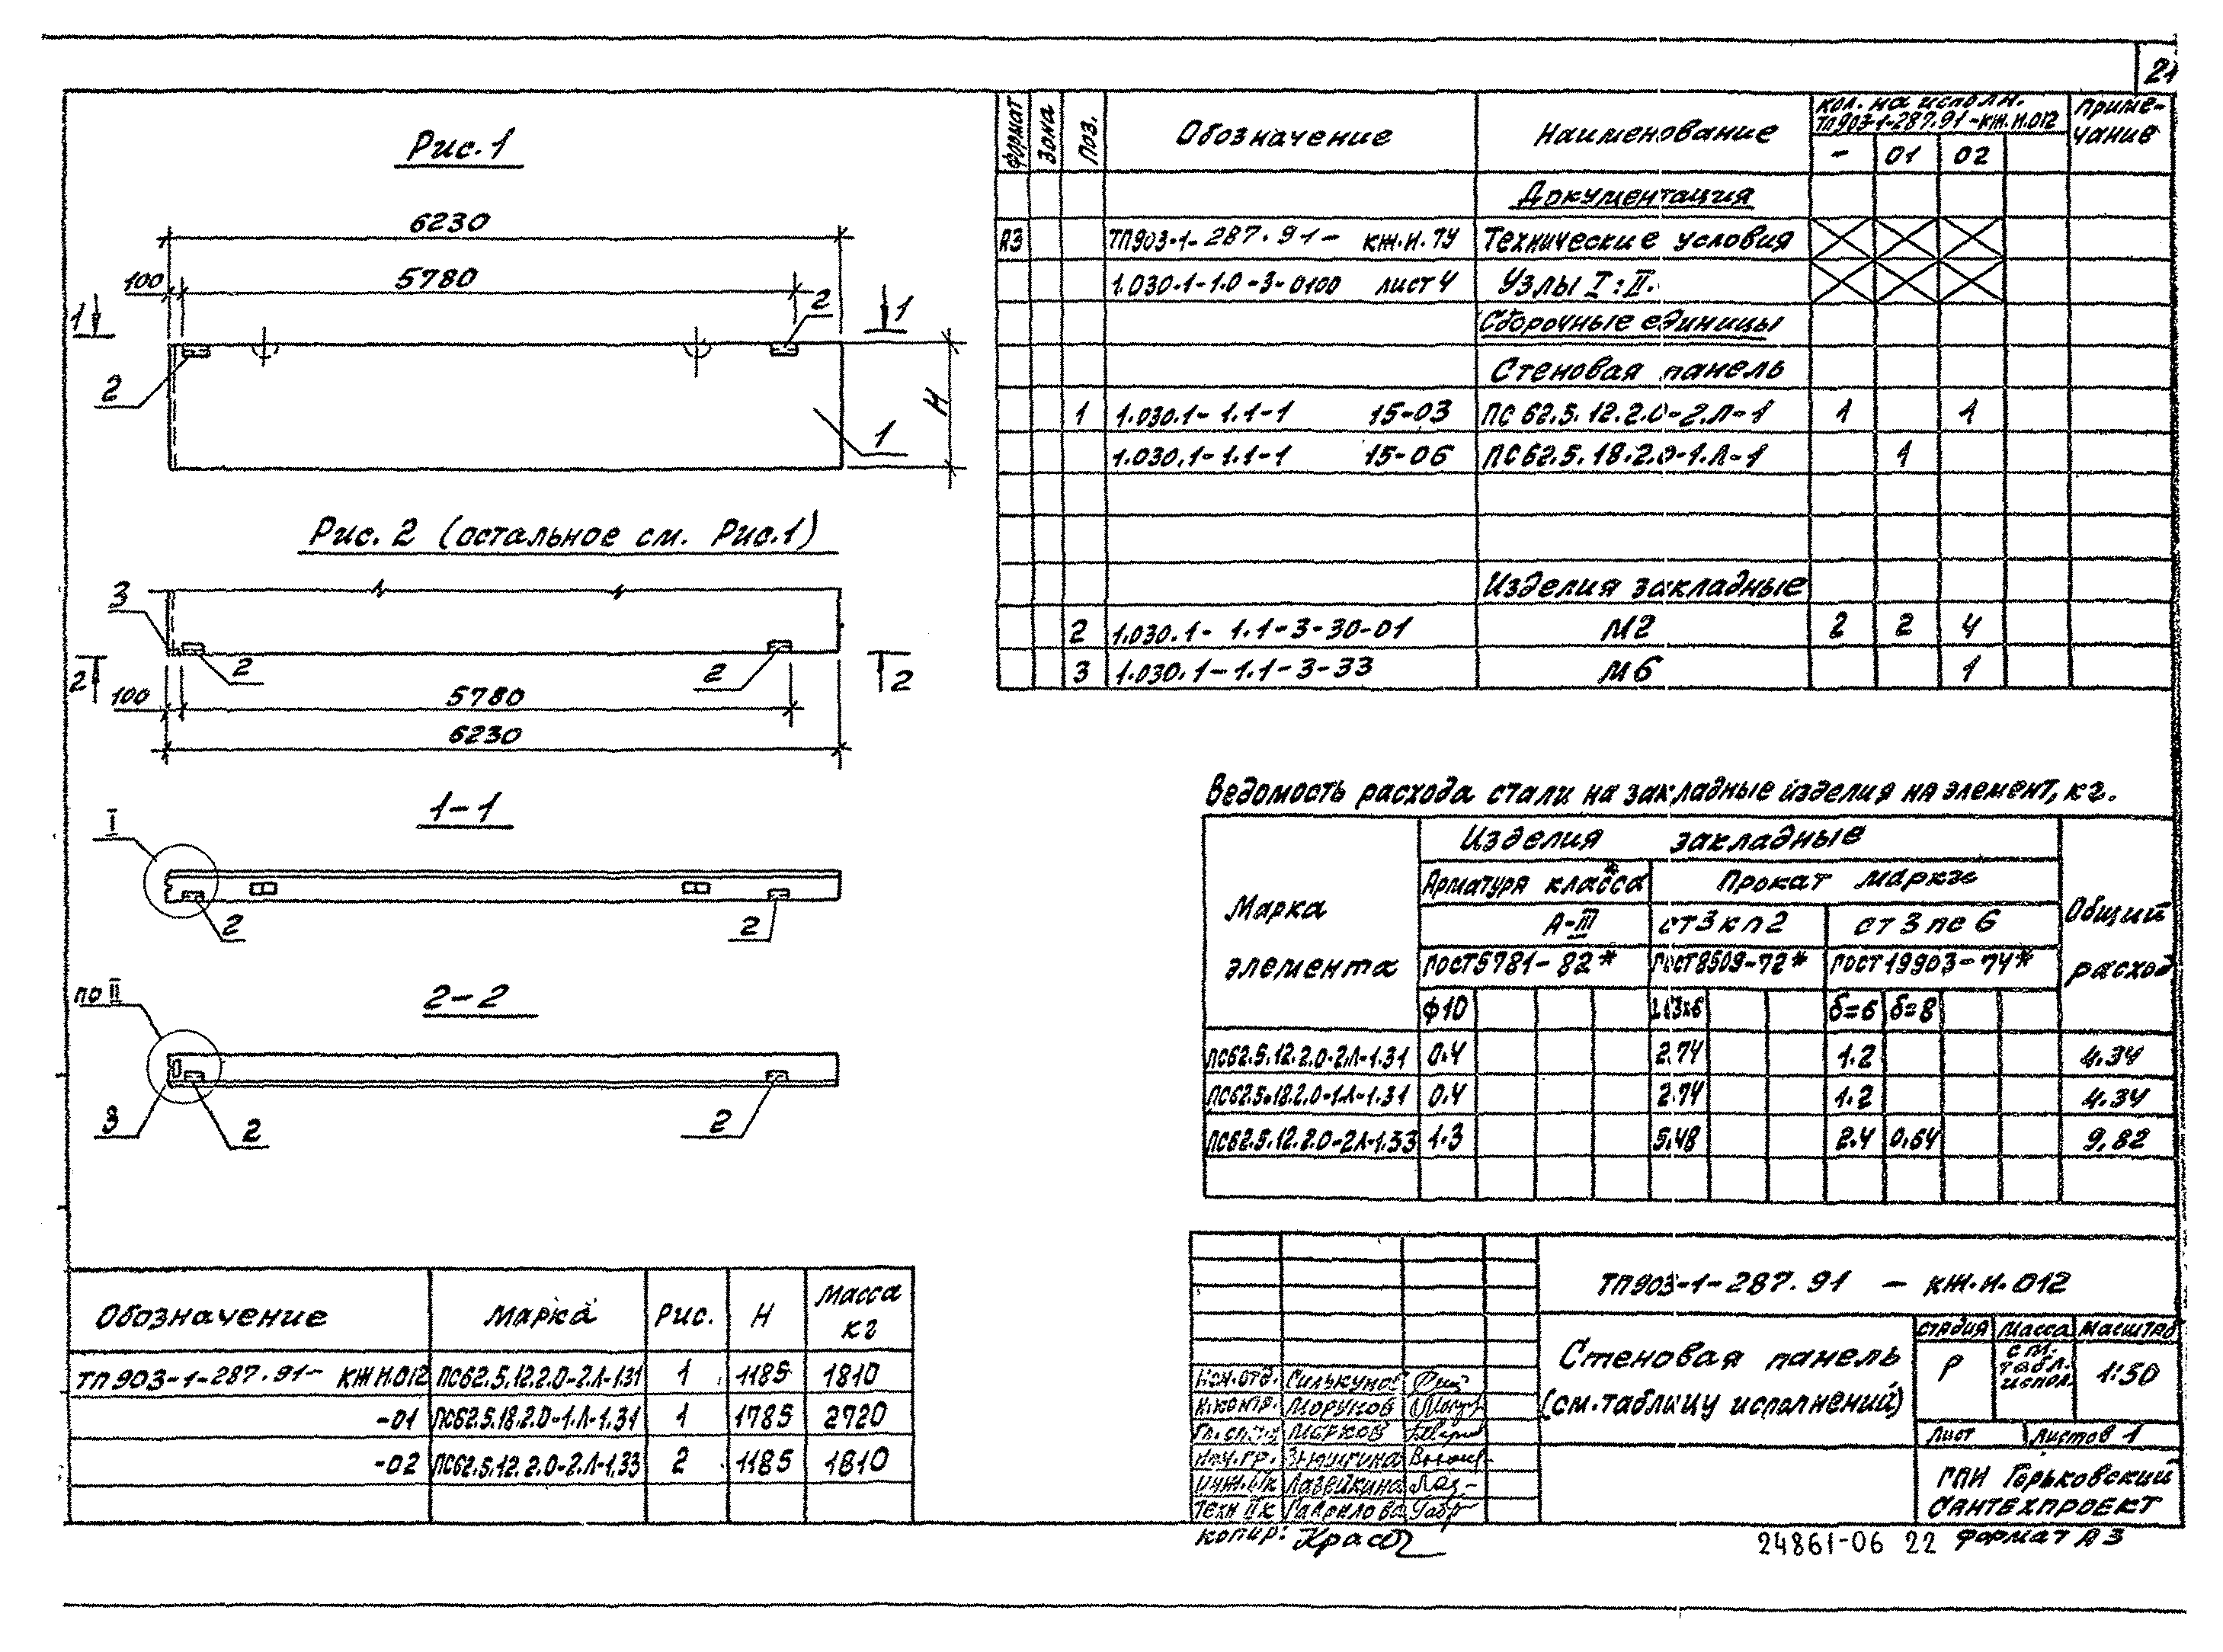 21
Рис. 1
6230
100 5780
1 1
2 2
H
1
Рис. 2 (остальное см. Рис.1)
3
2 2
2 2
100 5780
6230
1-1
I
2 2
2-2
по II
3 2 2
Формат Зона Поз. Обозначение Наименование кол. на исполн. ТП903-1-287.91-КЖ.И.012 Приме-чание
- 01 02
Документация
А3 ТП903-1-287.91- КЖ.И.ТУ Технические условия
1.030.1-1.0-3-0100 лист 4 Узлы I; II.
Сборочные единицы
Стеновая панель
1 1.030.1-1.1-1 15-03 ПС 62.5.12.2.0-2.Л-1 1 1
1.030.1-1.1-1 15-06 ПС 62.5.18.2.0-1.Л-1 1
Изделия закладные
2 1.030.1-1.1-3-30-01 М2 2 2 4
3 1.030.1-1.1-3-33 М6 1
Ведомость расхода стали на закладные изделия на элемент, кг.
Марка элемента Изделия закладные Общий расход
Арматура класса Прокат марки
А-III ст3кп2 ст3пс6
ГОСТ5781-82* ГОСТ8509-72* ГОСТ19903-74*
ф10 δ=6 δ=8
ПС62.5.12.2.0-2Л-1.31 0.4 2.74 1.2 4.34
ПС62.5.18.2.0-1Л-1.31 0.4 2.74 1.2 4.34
ПС62.5.12.2.0-2Л-1.33 1.3 5.48 2.4 0.64 9,82
Обозначение Марка Рис. H Масса кг
ТП903-1-287.91- КЖ.И.012 ПС62.5.12.2.0-2.Л-1.31 1 1185 1810
-01 ПС62.5.18.2.0-1.Л-1.31 1 1785 2720
-02 ПС62.5.12.2.0-2.Л-1.33 2 1185 1810
ТП903-1-287.91 - КЖ.И.012
Стеновая панель
(см. таблицу исполнений)
стадия Масса Масштаб
Р см. табл. испол. 1:50
Лист Листов 1
ГПИ Горьковский
Сантехпроект
Нач.отд. Силькунов
Н.контр. Моруков
Марков
Нач.гр. Зенюшкина
Лазейкина
Гаврилова
копир:
24861-06 22 Формат А3